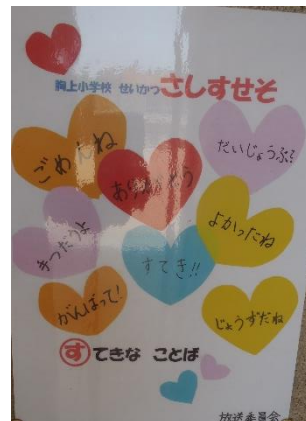 胸上小学校 せいかつ さしすせそ
ごめんね
ありがとう
だいじょうぶ?
手つだうよ
すてき!!
よかったね
がんばって!
じょうずだね
すてきな ことば
放送委員会